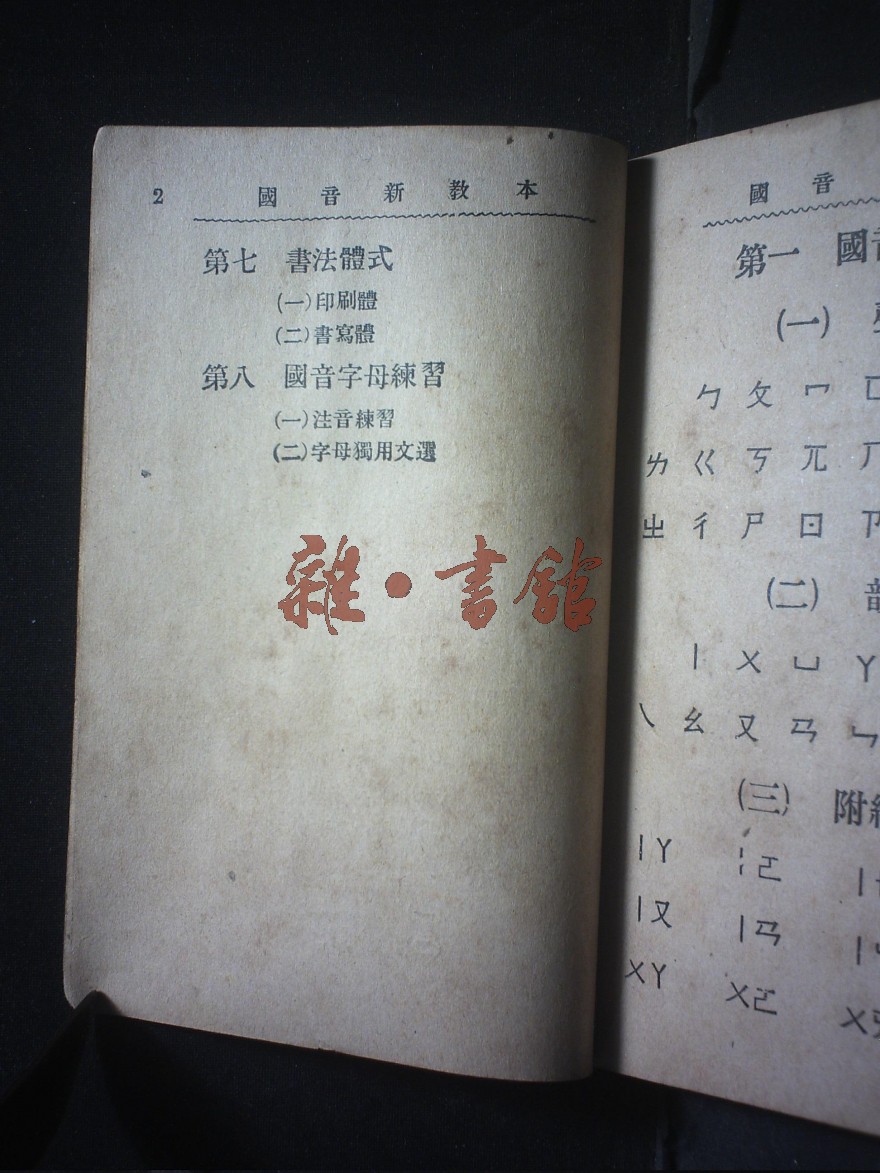 2 國音新教本
第七 書法體式
(一)印刷體
(二)書寫體
第八 國音字母練習
(一)注音練習
(二)字母獨用文選
雜·書館
國音
第一 國音
(一)
ㄅ ㄆ ㄇ ㄈ
ㄌ ㄍ ㄎ ㄫ ㄏ
ㄓ ㄔ ㄕ ㄖ ㄗ
(二)
ㄧ ㄨ ㄩ ㄚ
ㄟ ㄠ ㄡ ㄢ ㄣ
(三) 附
ㄧㄚ ㄧㄛ
ㄧㄡ ㄧㄢ
ㄨㄚ ㄨㄛ